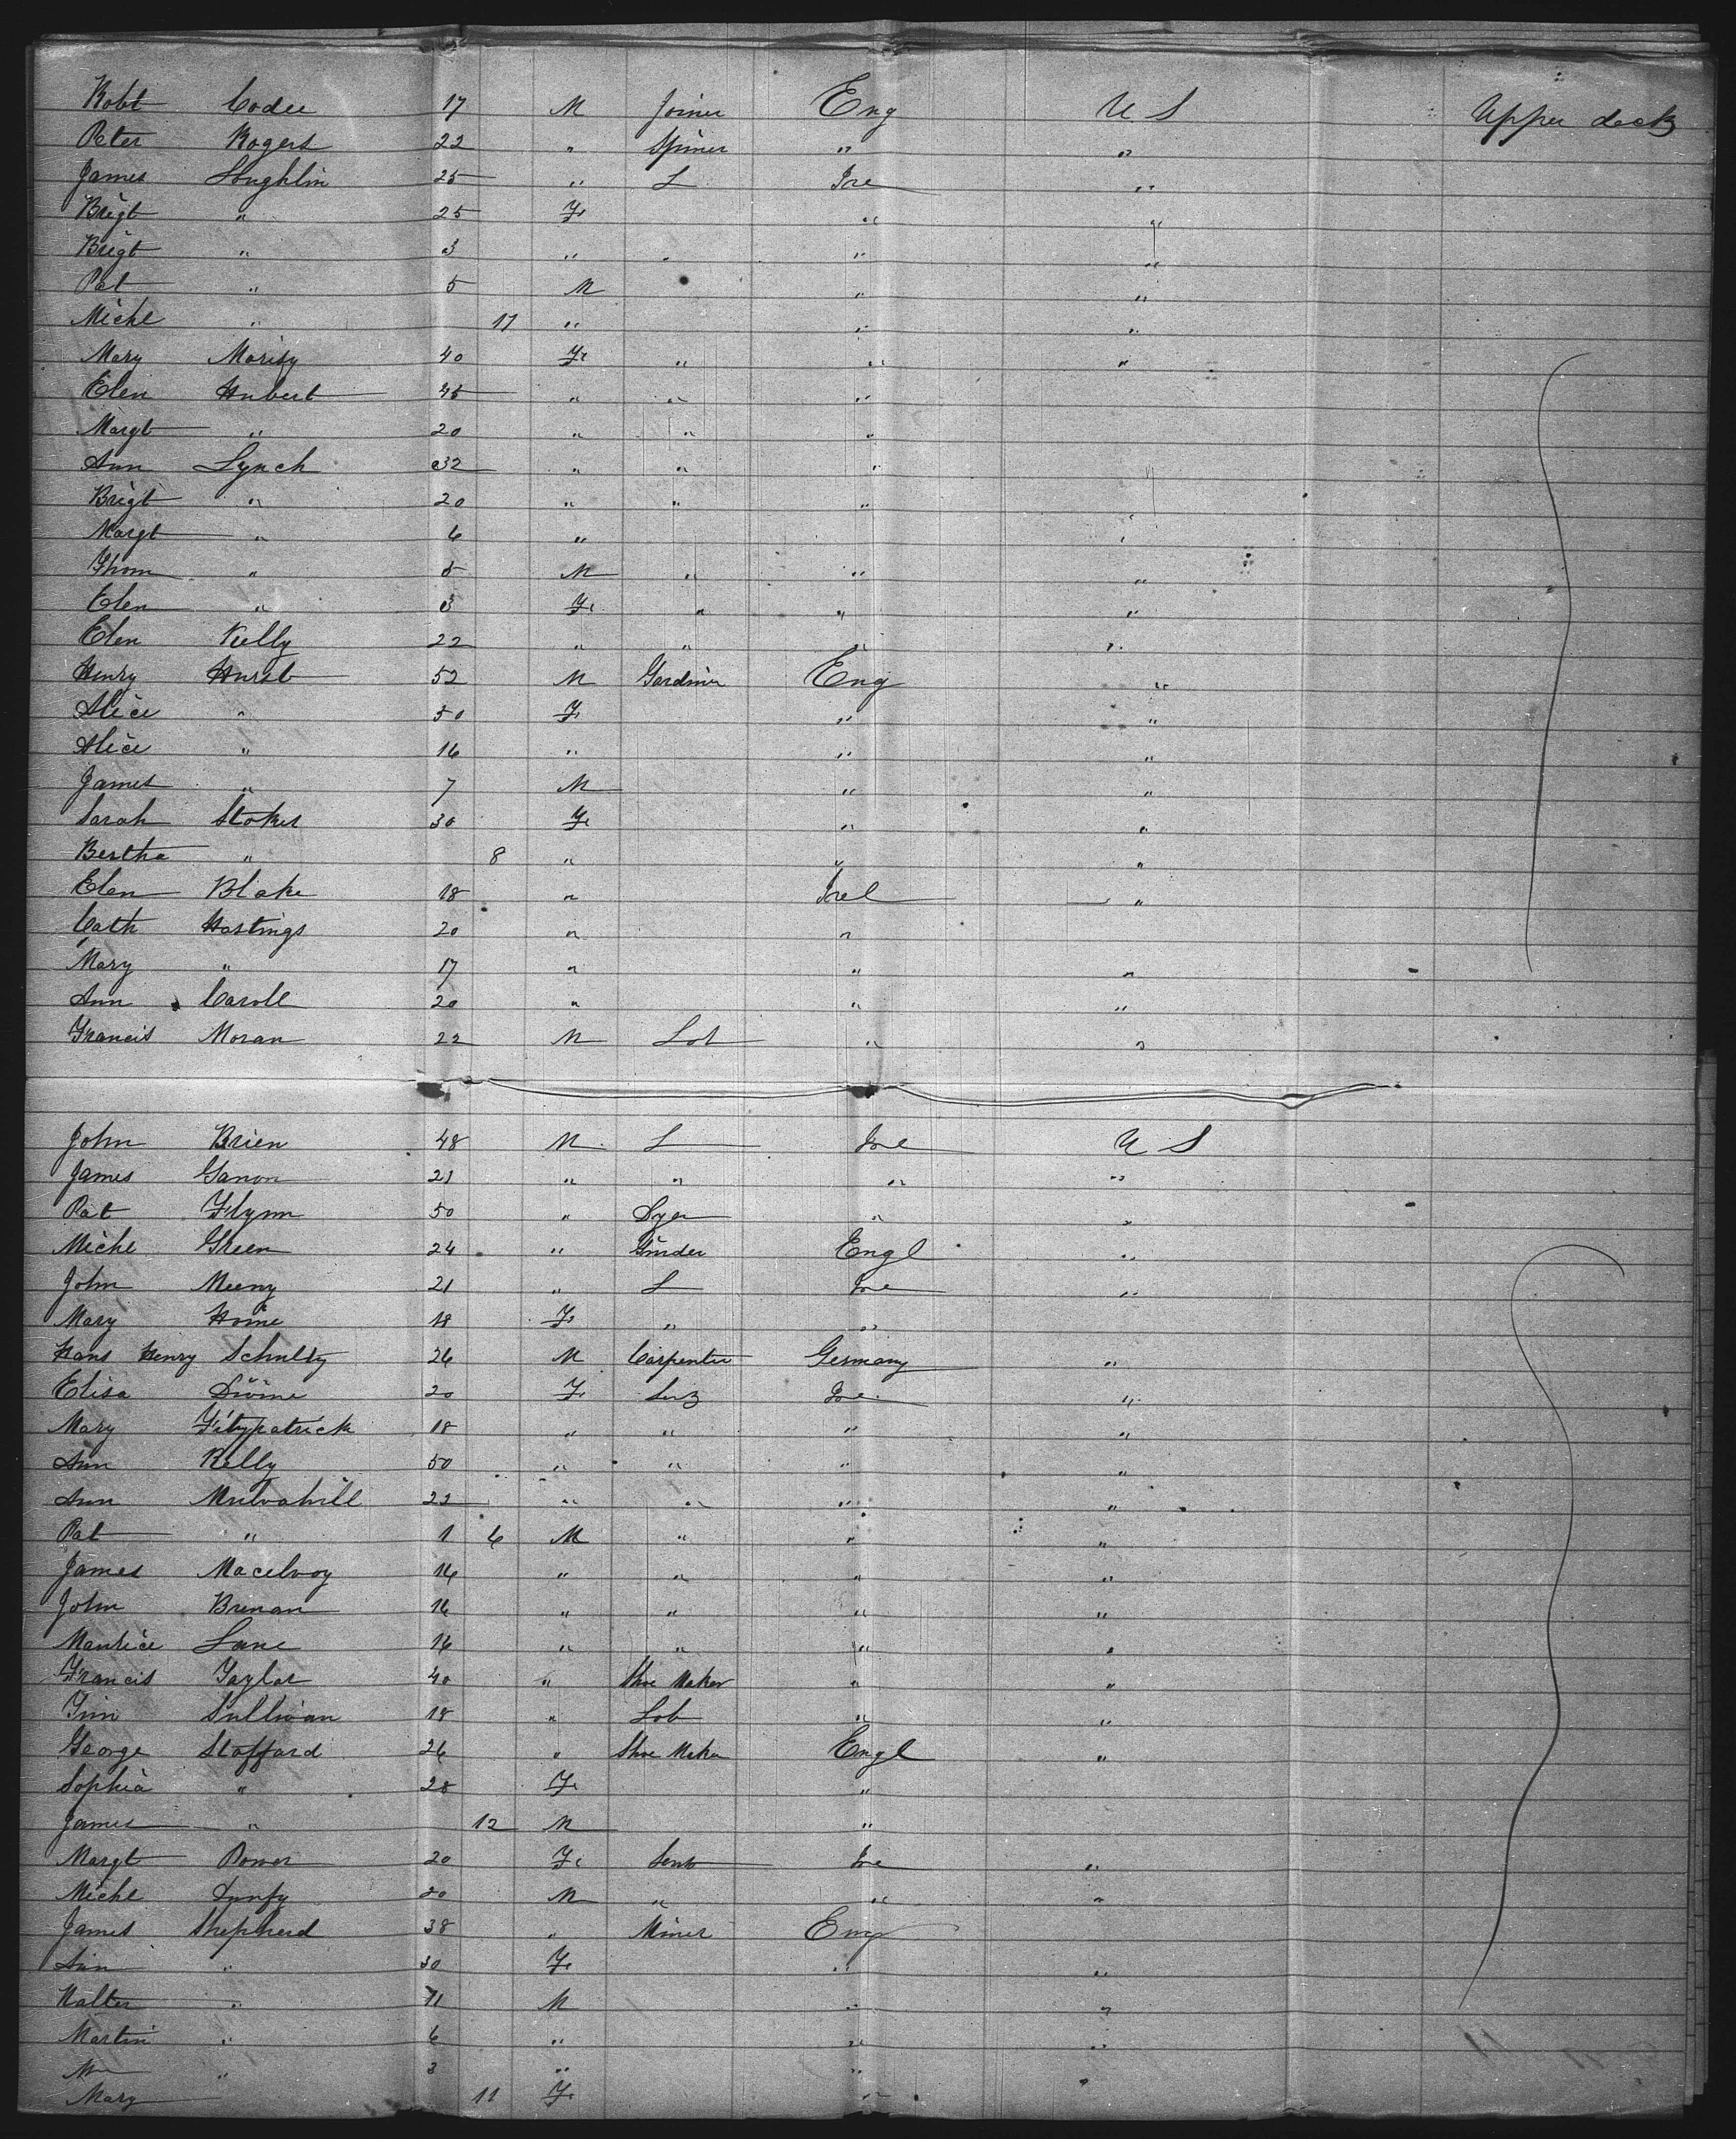 Robt Codee 17 M Joiner Eng U S Upper deck
Peter Rogers 22 " Spiner " "
James Loughlin 25 " L Ire "
Brigt " 25 Fe " "
Brigt " 3 " " " "
Pat " 5 M " "
Michl " 17 " " "
Mary Morisy 40 Fe " " "
Elen Hubert 45 " " "
Margt " 20 " " "
Ann Lynch 32 " " "
Brigt " 20 " " "
Margt " 6 " "
Thom " 5 M " " "
Elen " 3 Fe " " "
Elen Kelly 22 " " " "
Henry Hurst 52 M Gardiner Eng "
Alice " 50 F " "
Alice " 16 " " "
James " 7 M " "
Sarah Stoker 30 Fe " "
Bertha " 8 " " "
Elen Blake 18 " Irel "
Cath Hastings 20 " "
Mary " 17 " " "
Ann Caroll 20 " " "
Francis Moran 22 M Lob " "
John Brien 48 M L Ire U S
James Ganon 21 " " " "
Pat Flynn 50 " Dyer " "
Michl Green 24 " Grinder Engl "
John Meeny 21 " L Ire "
Mary Hoine 18 Fe " "
Hans Henry Schulty 26 M Carpenter Germany "
Elisa Divine 20 F Ire "
Mary Fitzpatrick 18 " " " "
Ann Kelly 50 " " " "
Ann Mulvahill 22 " " " "
Pat " 1 6 M " " "
James Macelvoy 16 " " " "
John Brenan 16 " " " "
Maurice Lane 16 " " " "
Francis Taylor 40 " Shoe Maker " "
Tim Sullivan 18 " Lob " "
George Stoffard 26 " Shoe Maker Engl "
Sophia " 28 Fe "
James " 12 M "
Margt Power 20 Fe Servt Ire "
Michl Dunfy 20 M " " "
James Shepherd 38 " Miner Eng
Ann " 30 Fe " "
Walter " 11 M " "
Martin " 6 " " "
" 3 " "
Mary 11 Fe "